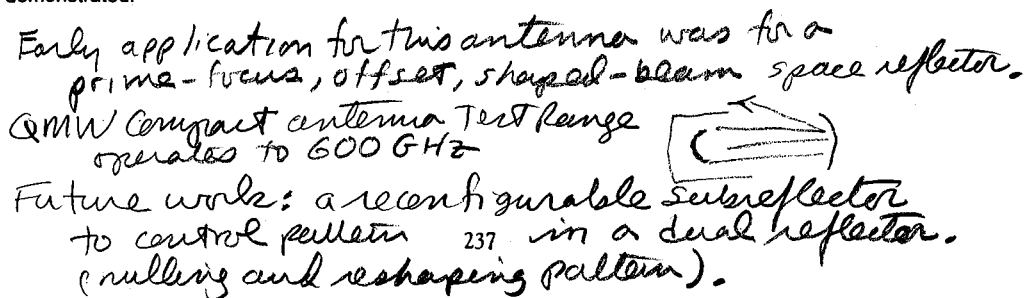 demonstrated.
Early application for this antenna was for a
prime-focus, offset, shaped-beam space reflector.
QMW Compact antenna Test Range
operates to 600 GHz
Future work: a reconfigurable subreflector
to control pattern 237 in a dual reflector.
(nulling and reshaping pattern).